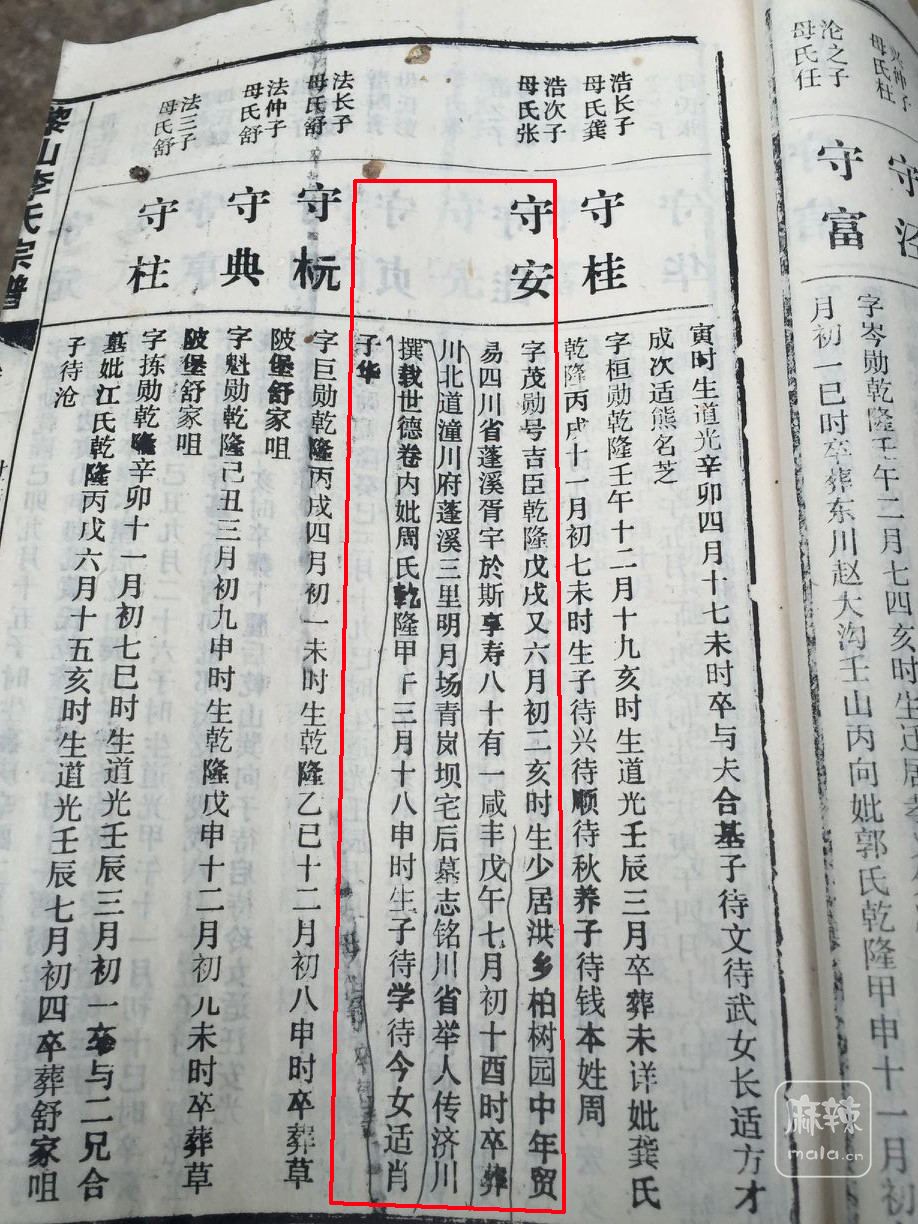 仲子
母氏杜
沦之子
母氏任
守
守富
字岑勋乾隆壬午二月七四亥时生迁居
月初一巳时卒葬东川赵大沟壬山丙向妣郭氏乾隆甲申十一月初
寅时生道光辛卯四月十七未时卒与夫合基子待文待武女长适方才
成次适熊名芝
浩长子
母氏龚
守桂
字桓勋乾隆壬午十二月十九亥时生道光壬辰三月卒葬未详妣龚氏
乾隆丙戌十一月初七未时生子待兴待顺待秋养子待钱本姓周
浩次子
母氏张
守安
字茂勋号吉臣乾隆戊戌又六月初二亥时生少居洪乡柏树园中年贸
易四川省蓬溪胥宇於斯享寿八十有一咸丰戊午七月初十酉时卒葬
川北道潼川府蓬溪三里明月场青岚坝宅后墓志铭川省举人传济川
撰载世德卷内妣周氏乾隆甲午三月十八申时生子待学待今女适肖
子华
法长子
母氏舒
守杬
字巨勋乾隆丙戌四月初一未时生乾隆乙巳十二月初八申时卒葬草
陂堡舒家咀
法仲子
母氏舒
守典
字魁勋乾隆己丑三月初九申时生乾隆戊申十二月初九未时卒葬草
陂堡舒家咀
法三子
母氏舒
守柱
字拣勋乾隆辛卯十一月初七巳时生道光壬辰三月初一卒与二兄合
墓妣江氏乾隆丙戌六月十五亥时生道光壬辰七月初四卒葬舒家咀
子待沧
黎山李氏宗谱
麻辣
mala.cn